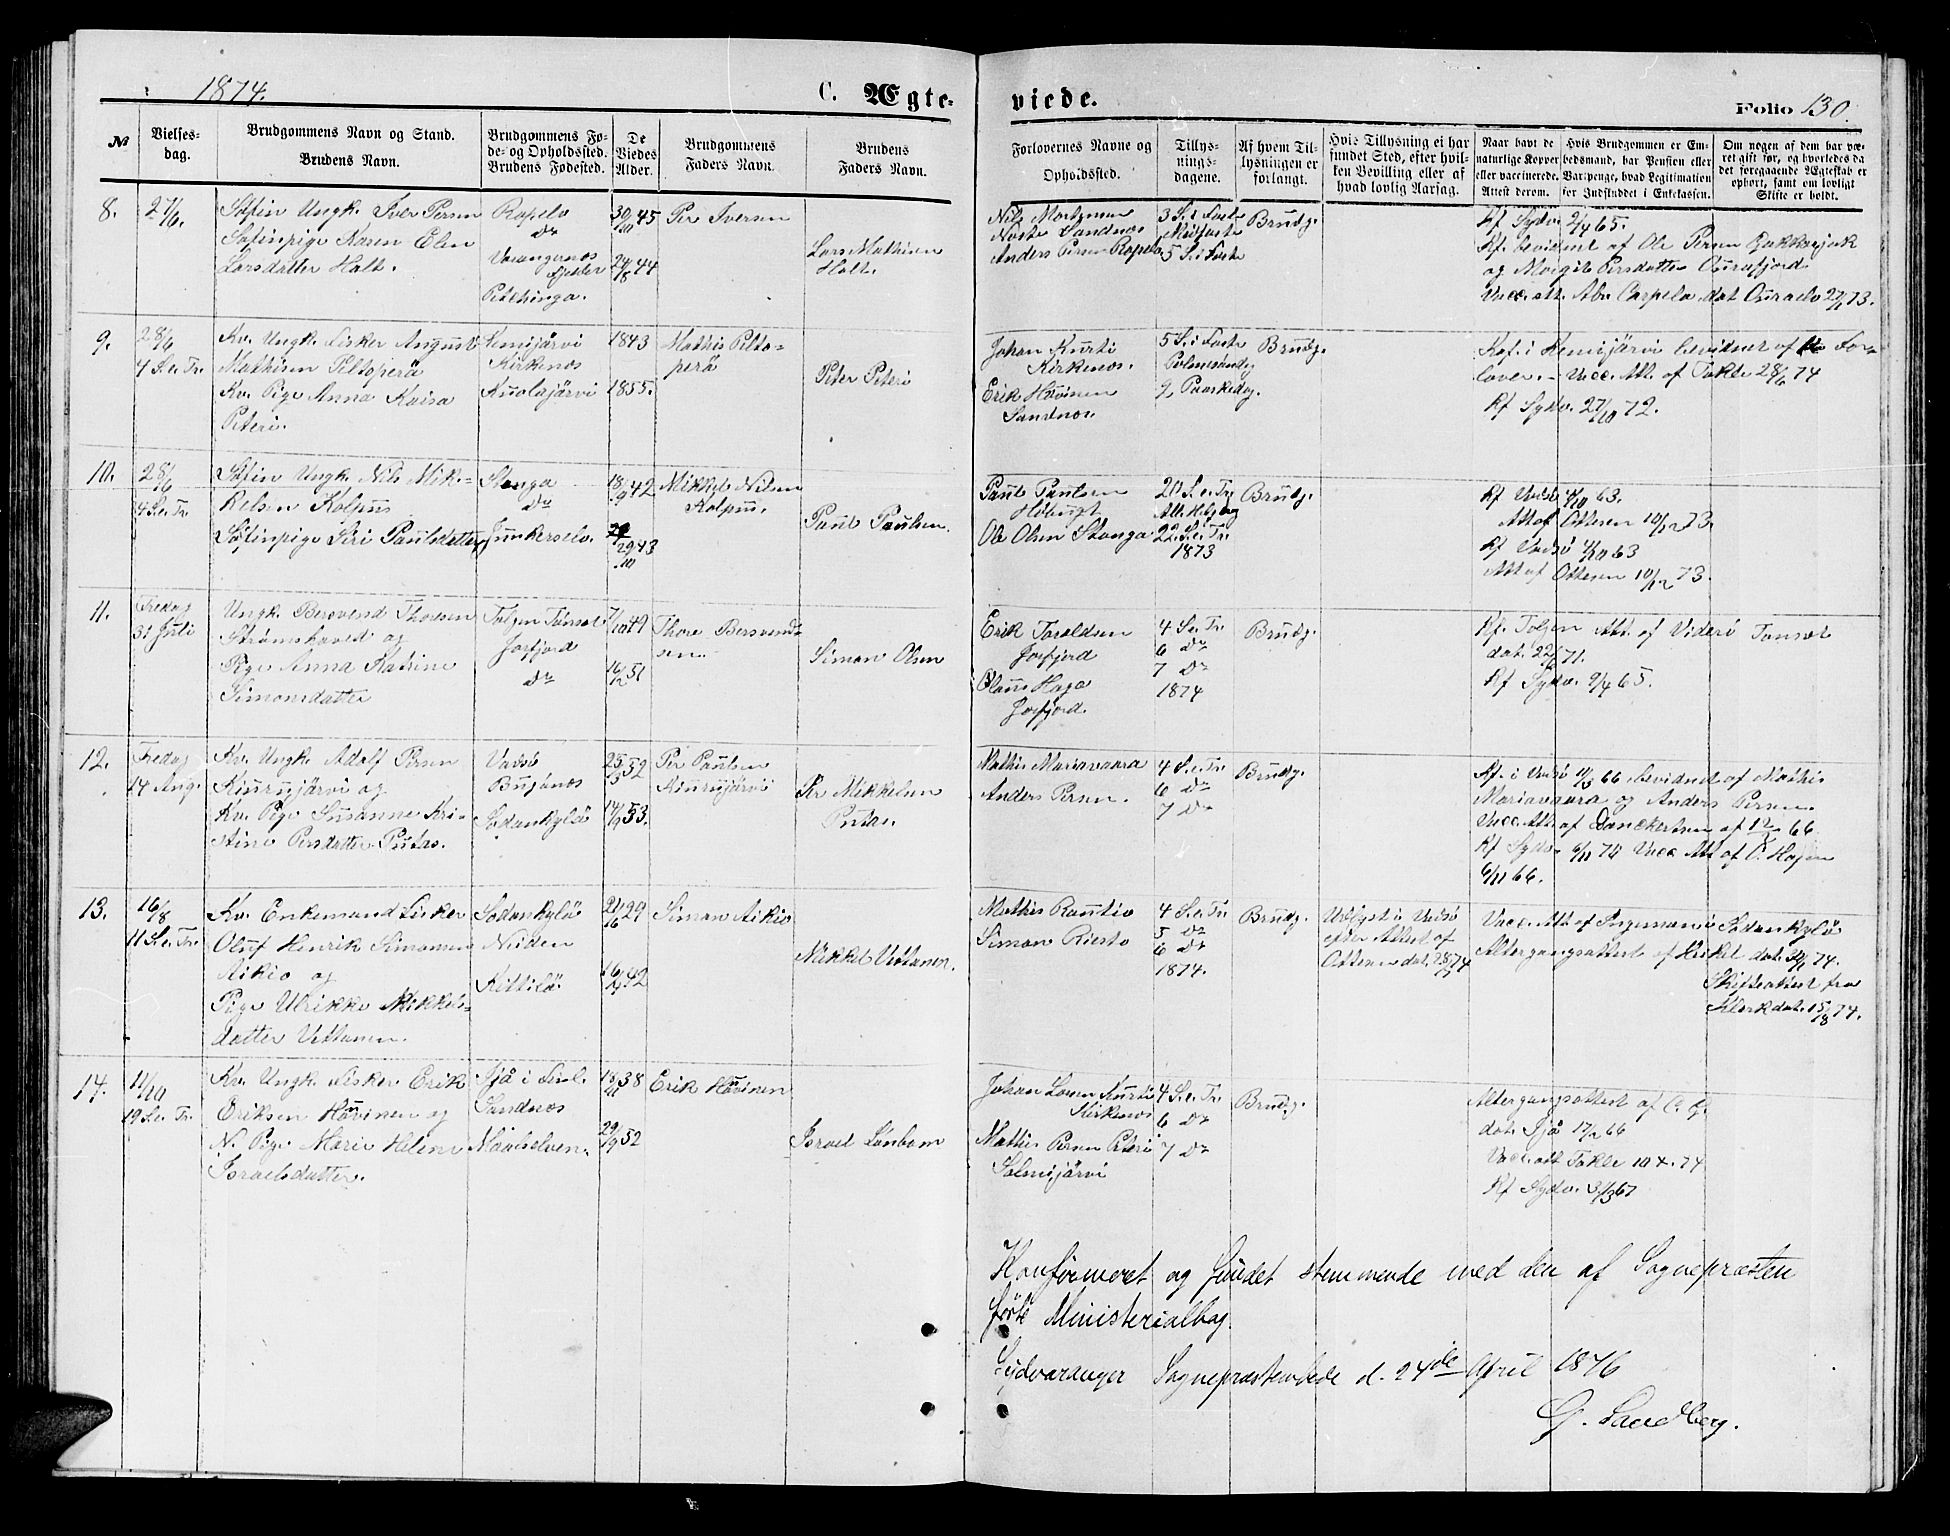 1874.
C. Ægte-
viede.
Folio 130.
№
Vielses-
dag.
Brudgommens Navn og Stand.
Brudens Navn.
Brudgommens Fø-
de- og Opholdssted.
Brudens Fødested.
De
Viedes
Alder.
Brudgommens
Faders Navn.
Brudens
Faders Navn.
Forlovernes Navne og
Opholdssted.
Tillys-
nings-
dagene.
Af hvem Til-
lysningen er
forlangt.
Hvis Tillysning ei har
fundet Sted, efter hvil-
ken Bevilling eller af
hvad lovlig Aarsag.
Naar havt de
naturlige Kopper
eller vaccinerede.
Attest derom.
Hvis Brudgommen er Em-
bedsmand, har Pension eller
Vartpenge, hvad Legitimation
for Indskuddet i Enkekassen.
Om nogen af dem har væ-
ret gift før, og hvorledes da
det foregaaende Ægteskab er
ophørt, samt om lovligt
Skifte er holdt.
8.
27/6.
Søfin Ungk. Iver Persen
Søfinpige Karen Elen
Larsdatter Holt.
Ropelv
Do
Varangernes
Fjelder
Petchinga.
30/10 45
29/8 44
Per Iversen
Lars Mathisen
Holt.
Nils Mortensen
Næste Sandnes
Anders Persen Ropelv
3 S. i Faste
Midfaste
5 S. i Faste
Brudg.
Kf. Sydv. 9/4 65.
Kf. bevidnet af Ole Persen
og Margit Persdatter
Vacc. att. Abr. Carpelo dat.
9.
28/6
4 S. e. Tr.
Kv. Ungk. Fisker August
Mathisen Peltoperä
Kv. Pige Anna Kaisa
Peteri.
Kemijärvi
Kirkenes
Kuolajärvi
1843
1855.
Mathis Pelto-
perä
Peter Peteri
Johan Kurti
Kirkenes.
Erik Hövinen
Sandnes.
5 S. i Faste
Palmesøndag
2 Paaskedag.
Brudg.
Kof. i Kemijärvi bevidnet af For-
lover. - Vacc. Att. af Takle 28/6 74
Kf Sydv. 27/10 72.
10.
28/6
4 S. e. Tr.
Søfin Ungk. Nils Mik-
kelsen Kolpus
Søfinpige Siri Paulsdatter
Stonga
Do
Junkerselv.
18/9 42
29/10 43
Mikkel Nilsen
Kolpus.
Paul Paulsen.
Paul Paulsen
Høbugt
Ole Olsen Stonga
20 S. e. Tr.
Alle Helg. dag
22 S. e. Tr.
1873
Brudg.
Kf Vadsø 4/10 63.
Att af Ottesen 10/12 73.
Kf Vadsø 4/10 63
Att af Ottesen 10/12 73.
11.
Fredag
31 Juli
Ungk. Bersvend Thoresen
Strømshoved og
Pige Anna Katrine
Simonsdatter
Tolgen Tønset
Jarfjord
Do
7/10 49
16/2 51
Thore Bersvend-
sen.
Simon Olsen
Erik Taraldsen
Jarfjord
Claus Haga
Jarfjord.
4 S. e. Tr.
6 Do
7 Do
1874
Brudg.
Kf. Tolgen Att. af Tønset
dat. 71.
Kf Sydv. 9/4 65.
12.
Fredag
14 Aug.
Kv. Ungk. Adolf Persen
Kiurujärvi og
Kv. Pige Susanne Kri-
stine Persdatter Putas.
Vadsø
Bugønes
Sodankylä
52
53.
Per Paulsen
Kiurujärvi
Per Mikkelsen
Putas.
Mathis Mariavaara
Anders Persen.
4 S. e. Tr.
6 Do
7 Do
Brudg.
Kf. i Vadsø 66 bevidnet af Mathis
Mariavaara og Anders Persen.
Vacc. Att. af Danckertsen af 66
Kf Sydv. 6/11 70 Vacc Att af O. Hojen
6/11 66.
13.
16/8
11 S. e. Tr.
Kv. Enkemand Fisker
Oluf Henrik Simonsen
Aikio og
Pige Ulrikke Mikkels-
datter Vettanen.
Sodankylä
Neiden
Kittilä
29
42
Simon Aikio
Mikkel Vettanen.
Mathis Rautio
Simon Riesto
4 S. e. Tr.
5 Do
6 Do
1874.
Brudg.
Udlyst i Vadsø
efter Attest af
Ottesen dat.
Vacc. Att. af Ingeman i Sodankylä
Altergangsattest af Heikel dat. 74.
Skifteattest fra
Klerk dat. 15/8 74.
14.
11/10
19 S. e. Tr.
Kv. Ungk. Fisker Erik
Eriksen Hövinen og
N. Pige Marie Helene
Israelsdatter.
Ijå i Finl.
Sandnes
Maalselven.
38
52
Erik Hövinen
Israel
Johan Larsen Kurti
Kirkenes
Mathis Persen Peteri
Salmijärvi
4 S. e. Tr.
6 Do
7 Do
Brudg.
Altergangsattest af
dat. Ijå 66
Vacc. att Takle 74
Kf Sydv. 67
Konfirmeret og fundet stemmende med den af Sognepræsten
førte Ministerialbog.
Sydvaranger Sognepræstembede d. 24de April 1876
G. Sandberg.